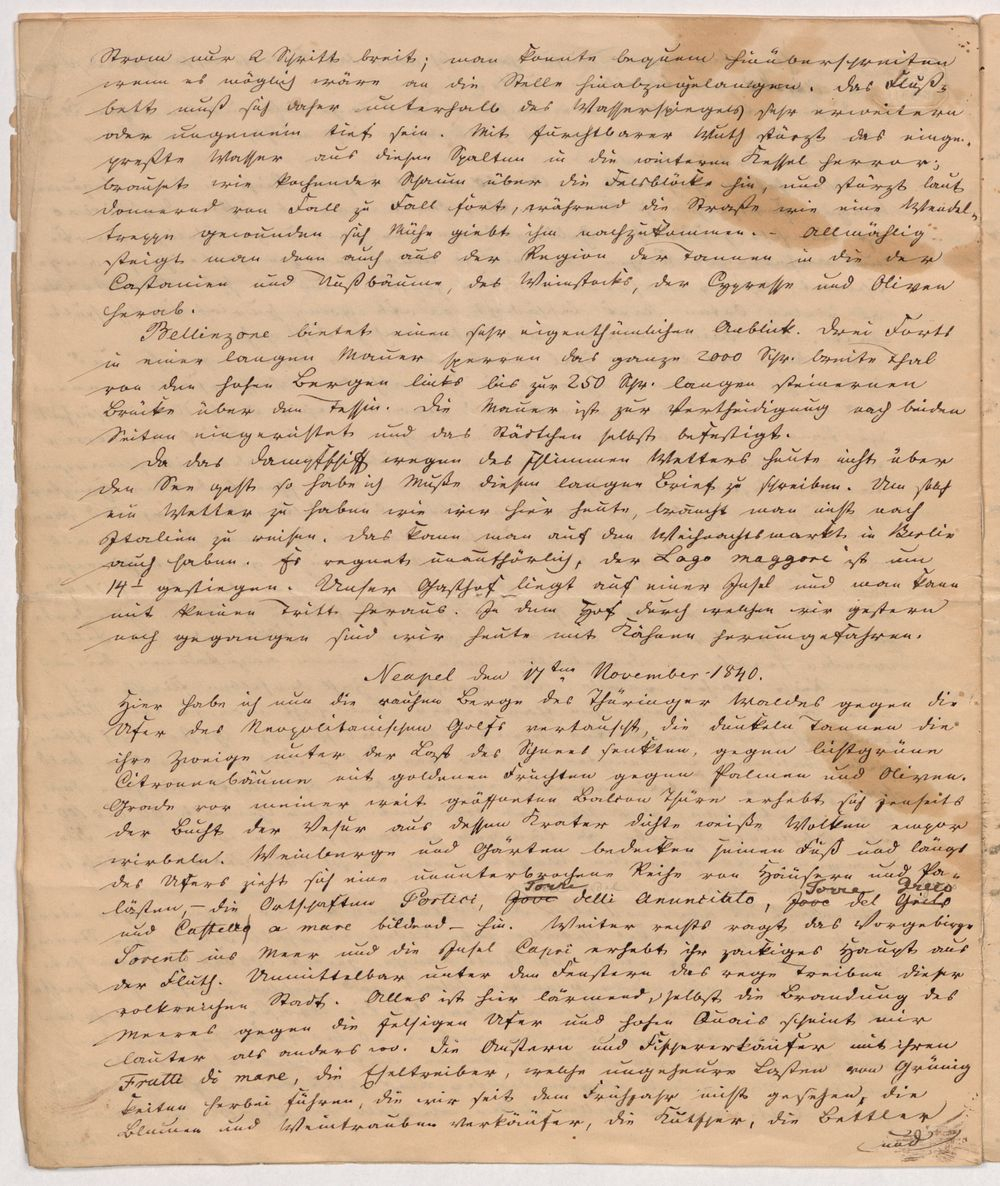 Strom nur 2 Schritt breit; man konnte bequem hinüberschreiten
wenn es möglich wäre an die Stelle hinabzugelangen. Das Fluß-
bett muß sich daher unterhalb des Wasserspiegels sehr erweitern
oder ungemein tief sein. Mit furchtbarer Wuth stürzt das einge-
preßte Wasser aus diesen Spalten in die weiteren Kessel hervor;
brauset wie kochender Schaum über die Felsblöcke hin, und stürzt laut
donnernd von Fall zu Fall fort, während die Straße wie eine Wendel-
treppe gewunden sich Mühe giebt ihm nachzukommen. – Allmählig
steigt man denn auch aus der Region der Tannen in die der
Castanien und Nußbäume, des Weinstocks, der Cypresse und Oliven
herab.
Bellinzone bietet einen sehr eigenthümlichen Anblick. Drei Forts
in einer langen Mauer sperren das ganze 2000 Schr. breite Thal
von den hohen Bergen links bis zur 250 Schr. langen steinernen
Brücke über den Tessin. Die Mauer ist zur Vertheidigung nach beiden
Seiten eingerichtet und das Städtchen selbst befestigt.
Da das Dampfschiff wegen des schlimmen Wetters heute nicht über
den See geht so habe ich Muße diesen langen Brief zu schreiben. Um solch
ein Wetter zu haben wie wir hier heute, braucht man nicht nach
Italien zu reisen. Das kann man auf dem Weihnachtsmarkt in Berlin
auch haben. Es regnet unaufhörlich, der Lago maggori ist um
14' gestiegen. Unser Gasthof liegt auf einer Insel und man kann
mit keinen Tritt heraus. In dem Hof durch welchen wir gestern
noch gegangen sind wir heute mit Kähnen herumgefahren.
Neapel den 17ten November 1840.
Hier habe ich nun die rauhen Berge des Thüringer Waldes gegen die
Ufer des Neopolitanischen Golfs vertauscht, die dunkeln Tannen die
ihre Zweige unter der Last des Schnees senkten, gegen lichtgrüne
Citronenbäume mit goldenen Früchten gegen Palmen und Oliven.
Grade vor meiner weit geöffneten Balcon Thüre erhebt sich jenseits
der Bucht der Vesuv aus dessen Krater dichte weiße Wolken empor
wirbeln. Weinberge und Gärten bedecken seinen Fuß und längs
des Ufers zieht sich eine ununterbrochene Reihe von Häusern und Pa-
Torre Torre Greco
lästen, – die Ortschaften Portici, Jove delli Anunciato, Jove del
und Castella a mare bildend – hin. Weiter rechts ragt das Vorgebirge
Sorent ins Meer und die Insel Capri erhebt ihr zackiges Haupt aus
der Fluth. Unmittelbar unter den Fenstern das rege Treiben dieser
volkreichen Stadt. Alles ist hier lärmend, selbst die Brandung des
Meeres gegen die felsigen Ufer und hohen Quais scheint mir
lauter als anders wo. Die Austern und Fischverkäufer mit ihren
Frutti di mare, die Eseltreiber, welche ungeheure Lasten von Grünig
keiten herbei führen, die wir seit dem Frühjahr nicht gesehen, die
Blumen und Weintrauben Verkäufer, die Kutscher, die Bettler
und